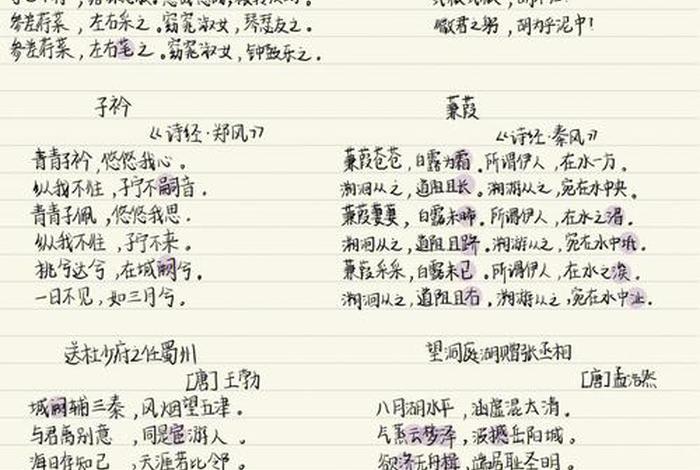 参差荇菜，左右采之。窈窕淑女，琴瑟友之。
参差荇菜，左右芼之。窈窕淑女，钟鼓乐之。
微君之躬，胡为乎泥中！
子衿
《诗经·郑风》
青青子衿，悠悠我心。
纵我不往，子宁不嗣音。
青青子佩，悠悠我思。
纵我不往，子宁不来。
挑兮达兮，在城阙兮。
一日不见，如三月兮。
蒹葭
《诗经·秦风》
蒹葭苍苍，白露为霜。所谓伊人，在水一方。
溯洄从之，道阻且长。溯游从之，宛在水中央。
蒹葭萋萋，白露未晞。所谓伊人，在水之湄。
溯洄从之，道阻且跻。溯游从之，宛在水中坻。
蒹葭采采，白露未已。所谓伊人，在水之涘。
溯洄从之，道阻且右。溯游从之，宛在水中沚。
送杜少府之任蜀州
[唐]王勃
城阙辅三秦，风烟望五津。
与君离别意，同是宦游人。
海内存知己，天涯若比邻。
望洞庭湖赠张丞相
[唐]孟浩然
八月湖水平，涵虚混太清。
气蒸云梦泽，波撼岳阳城。
欲济无舟楫，端居耻圣明。